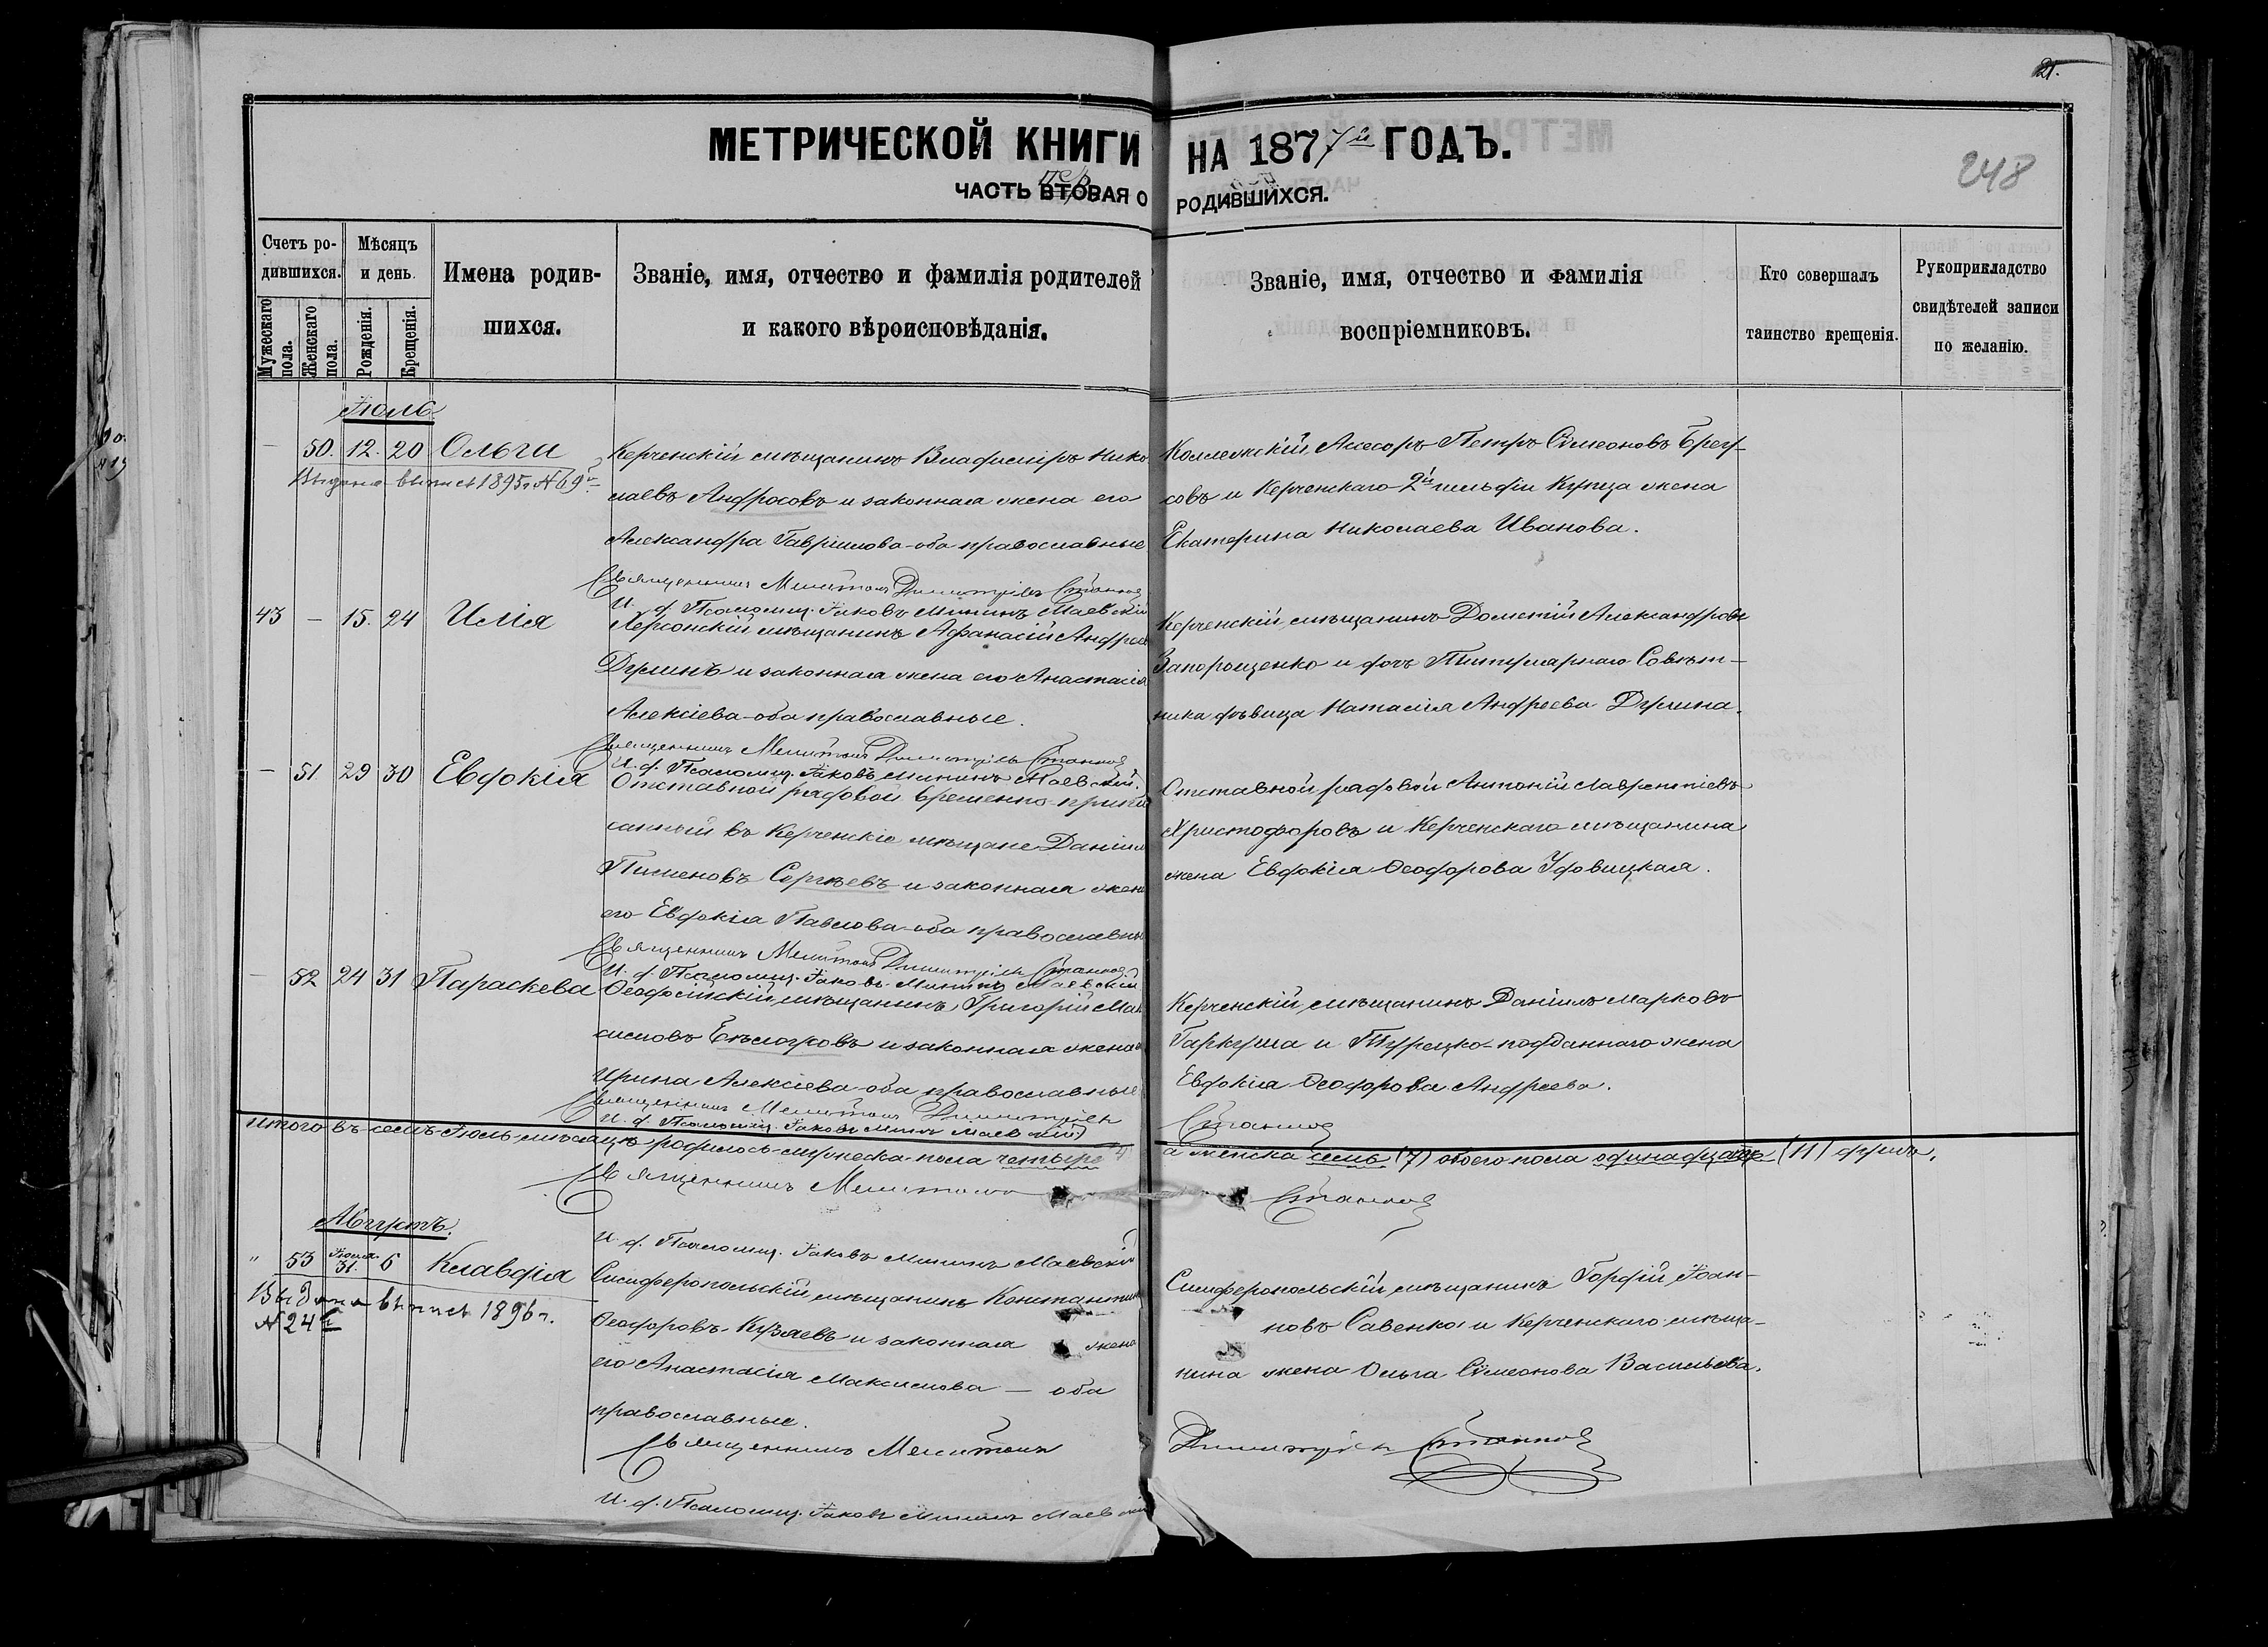 21.
МЕТРИЧЕСКОЙ КНИГИ НА 1877й ГОДЪ.
248
ЧАСТЬ ВТОРАЯ О РОДИВШИХСЯ.
Счетъ ро-
дившихся.
Мужескаго пола.
Женскаго пола.
Мѣсяцъ
и день.
Рожденія.
Крещенія.
Имена родив-
шихся.
Званіе, имя, отчество и фамилія родителей
и какого вѣроисповѣданія.
Званіе, имя, отчество и фамилія
воспріемниковъ.
Кто совершалъ
таинство крещенія.
Рукоприкладство
свидѣтелей записи
по желанію.
Іюль
— 50. 12. 20 Ольги
Выдана выпись 1895 г. № 69й
Керченскій мѣщанинъ Владиміръ Нико
лаевъ Андросовъ и законная жена его
Александра Гавріилова - оба православные
Коллежскій Асессоръ Петръ Сімеоновъ
совъ и Керченскаго 2й гильдіи Купца жена
Екатерина Николаева Иванова.
Священникъ Мелитонъ Димитріевъ Станков
И. д. Псаломщ. Іаковъ Мининъ Маевскій
43 — 15. 24 Илія
Херсонскій мѣщанинъ Афанасій Андреев
Дулинъ и законная жена его Анастасія
Алексіева - оба православные.
Керченскій мѣщанинъ Александровъ
Запорощенко и дочь Титулярнаго Совѣт-
ника дѣвица Наталія Андреева Дулина.
Священникъ Мелитонъ Димитріевъ Станков
И. д. Псаломщ. Іаковъ Мининъ Маевскій.
— 51 29 30 Евдокія
Отставной рядовой временно-припи
санный въ Керченскіе мѣщане Даніилъ
Пименовъ Сергѣевъ и законная жена
его Евдокія Павлова - оба православны
Отставной рядовой Антоній Лаврентіевъ
Христофоровъ и Керченскаго мѣщанина
жена Евдокія Ѳеодорова Удовицкая.
Священникъ Мелитонъ Димитріевъ Станков
И. д. Псаломщ. Іаковъ Мининъ Маевскій
— 52 24 31 Параскева
Ѳеодосійскій мѣщанинъ Григорій Мак
симовъ Бѣлоусовъ и законная жена
Ирина Алексіева - оба православные
Керченскій мѣщанинъ Даніилъ Марковъ
Гаркуша и Турецко-подданнаго жена
Евдокія Ѳеодорова Андреева.
Священникъ Мелитонъ Димитріевъ Станков
И. д. Псаломщ. Іаковъ Мининъ Маевскій
Итого въ семъ Іюль мѣсяцѣ родилось мужеска пола четыре 4) а женска семь (7) обоего пола одинадцать (11) душъ.
Священникъ Мелитонъ Станков
И. д. Псаломщ. Іаковъ Мининъ Маевскій
Августъ.
" 53 Іюля 31. 6 Клавдія
Выдана выпись 1896 г.
№ 24й
Симферопольскій мѣщанинъ Константинъ
Ѳеодоровъ Кузяевъ и законная жена
его Анастасія Максимова — оба
православные.
Симферопольскій мѣщанинъ Гордій Іоан-
новъ Савенко и Керченскаго мѣща-
нина жена Ольга Сімеонова Васильева.
Священникъ Мелитонъ Димитріевъ Станков
И. д. Псаломщ. Іаковъ Мининъ Маевскій